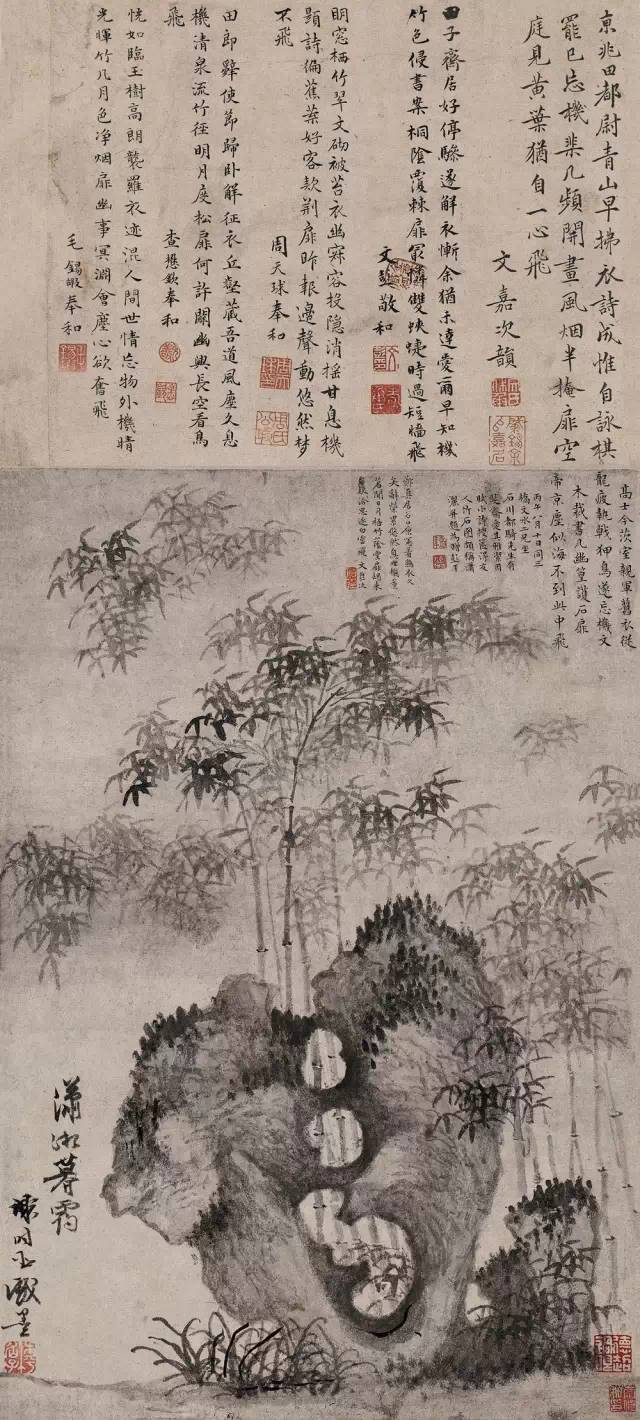 京兆田都尉青山早拂衣詩成惟自詠棋
罷已忘機棐几頻開畫風烟半掩扉空
庭見黃葉猶自一心飛
文嘉次韻
田子齋居好停驂遂解衣慚余猶未達愛爾早知機
竹色侵書案桐陰覆棘扉最憐雙蛺蝶時過短牆飛
文彭敬和
明窓栖竹翠文砌被苔衣幽寂容投隐消搖甘息機
題詩徧蕉葉好客款荆扉昨報邊聲動悠然梦
不飛
周天球奉和
田郎辭使節歸卧解征衣丘壑藏吾道風塵久息
機清泉流竹徑明月度松扉何許關幽興長空看鳥
飛
查懋欽奉和
恍如臨玉樹高朗襲羅衣迹混人間世情忘物外機晴
光暉竹几月色净烟扉幽事冥淵會塵心欲奮飛
毛錫嘏奉和
高士今茨室親軍舊衣從
龍疲執戟狎鳥遂忘機文
木裁書几幽篁護石扉
帝京塵似海不到此中飛
丙午八月十日同三
橋文水二兄至
石川都騎先生齋
瀟湘暮靄
戲墨